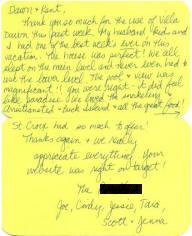 Dawn & Kent,
Thank you so much for the use of Villa
Dawn this past week. My husband Rod and
I had one of the best weeks ever on this
vacation. The house was perfect! We all
slept on the main level and never even had to
use the lower level. The pool & view was
magnificent! You were right - it did feel
like paradise. We loved the snorkeling
Christiansted + Buck Island + all the great food!
St Croix had so much to offer!
Thanks again & we really
appreciate everything. Your
website was right on target!
The
Joe, Cindy, Jessie, Tara,
Scott & Jenna